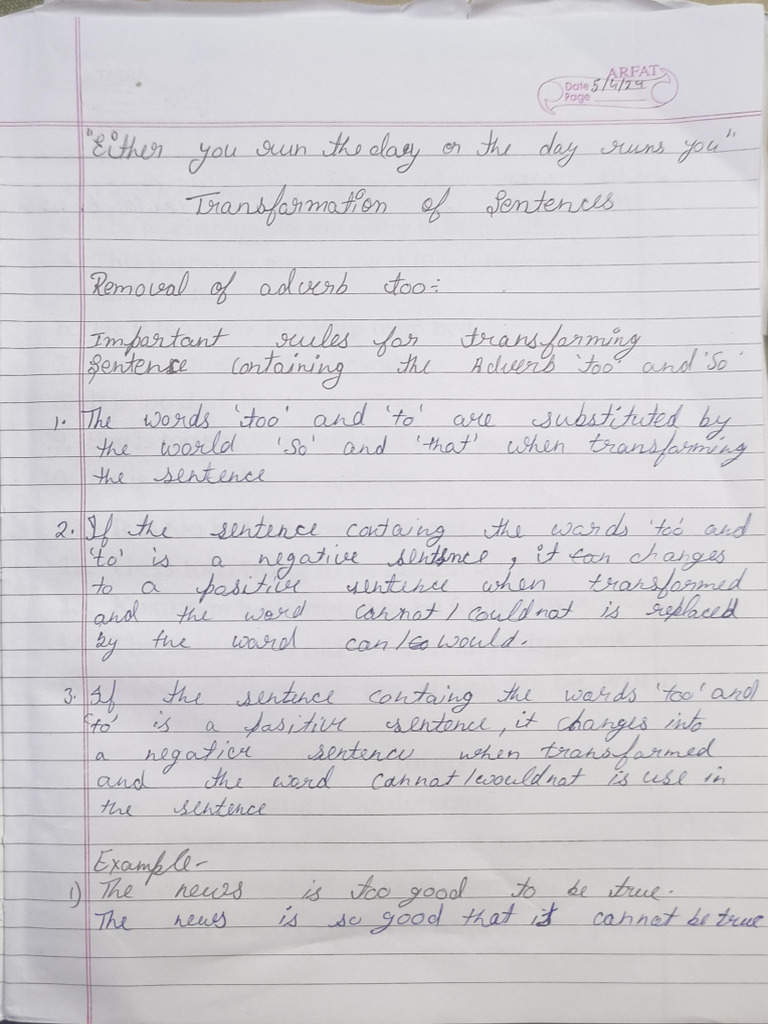 ARFAT
Date 5/4/24
Page
"Either you run the day or the day runs you"
Transformation of Sentences
Removal of adverb too:-
Important rules for transforming
Sentence containing the Adverb 'too' and 'So'
1. The words 'too' and 'to' are substituted by
the world 'So' and 'that' when transforming
the sentence
2. If the sentence containg the words 'too' and
'to' is a negative sentence, it can changes
to a positive sentence when transformed
and the word cannot/couldnot is replaced
by the word can/would.
3. If the sentence containg the words 'too' and
'to' is a positive sentence, it changes into
a negative sentence when transformed
and the word cannot/wouldnot is use in
the sentence
Example-
1) The news is too good to be true.
The news is so good that it cannot be true